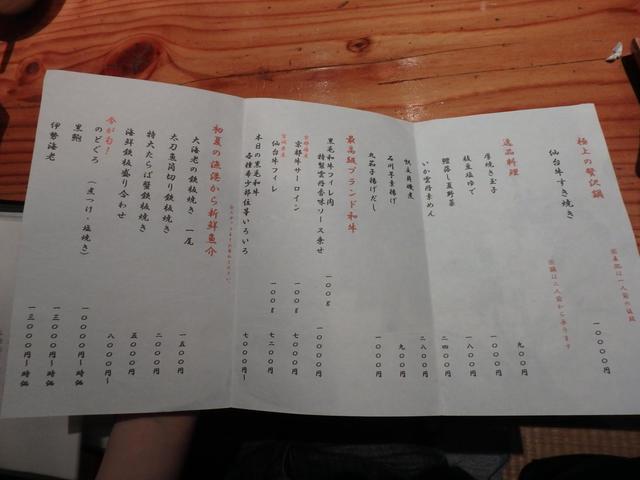 極上の贅沢鍋
仙台牛すき焼き
一〇〇〇〇円
※表記は一人前の値段
※鍋は二人前から承ります
逸品料理
厚焼き玉子
九〇〇円
枝豆塩ゆで
一八〇〇円
鰹落し夏野菜
二四〇〇円
いか雲丹素めん
二八〇〇円
九〇〇円
石川芋素揚げ
一〇〇〇円
丸茄子揚げだし
最高級ブランド和牛
黒毛和牛フィレ肉
特製雲丹香味ソース乗せ
一〇〇g
一〇〇〇〇円
京都牛サーロイン
一〇〇g
七〇〇〇円
仙台牛フィレ
一〇〇g
七二〇〇円
本日の黒毛和牛
各種希少部位等いろいろ
七〇〇〇円〜
初夏の漁港から新鮮魚介
大海老の鉄板焼き 一尾
一五〇〇円
太刀魚筒切り鉄板焼き
二〇〇〇円
特大たらば蟹鉄板焼き
五〇〇〇円
海鮮鉄板盛り合わせ
八〇〇〇円
今が旬!
のどぐろ (煮つけ・塩焼き)
一〇〇〇〇円〜
黒鮑
一三〇〇〇円〜時価
伊勢海老
一三〇〇〇円〜時価